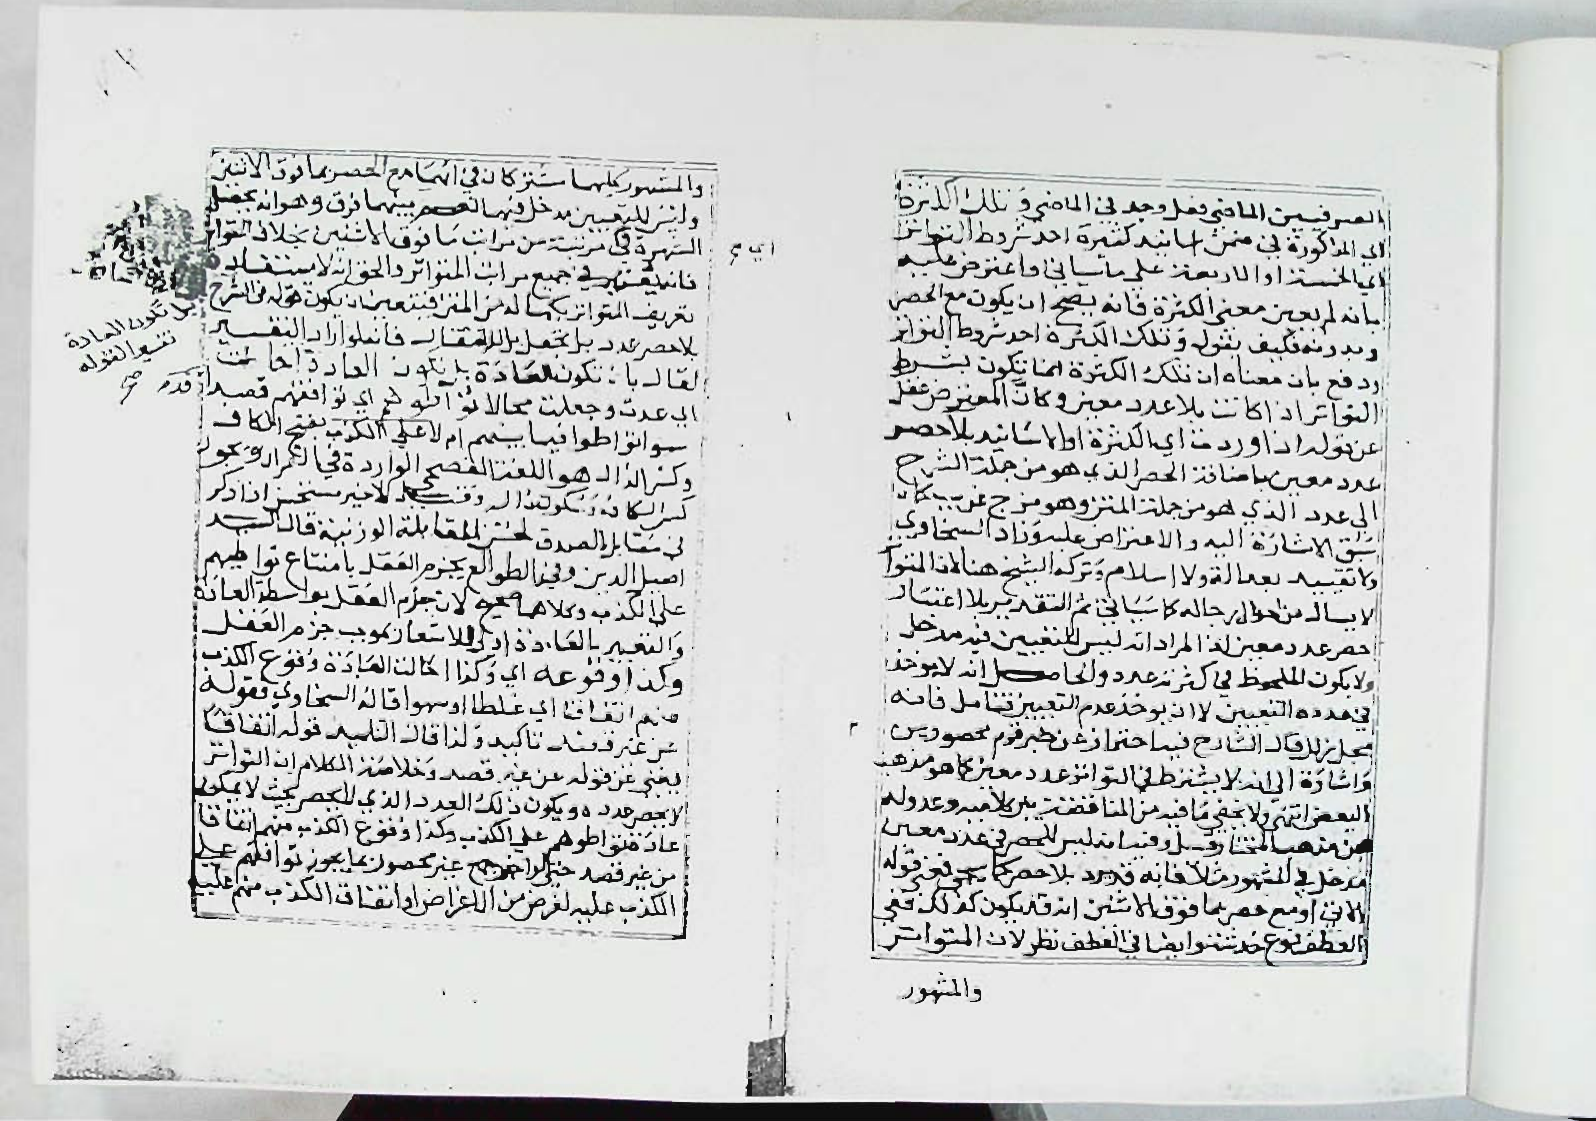 الصرفيين الماضي فعل وجد في الماضي وتلك الكثرة
اي المذكورة في ضمن اسانيد كثيرة احد شروط التواتر
اي الخمسة او الاربعة على ما سياتي واعترض عليه
بانه لم يعين معنى الكثرة فانه يصح ان يكون مع الحصر
وبدونه فكيف يقول وتلك الكثرة احد شروط التواتر
ودفع بان معناه ان تلك الكثرة انما تكون بشرط
التواتر اذا كانت بلا عدد معين وكان المعترض غفل
عن قوله اذا وردت اي الكثرة او الاسانيد بلا حصر
عدد معين باضافة الحصر الذي هو من جملة الشرح
الى عدد الذي هو من جملة المتن وهو مزج غريب
سبق الاشارة اليه والاعتراض عليه وزاد السخاوي
ولا تقييد بعدالة ولا اسلام وتركه الشيخ هنا لان المتواتر
لا يسال عن احوال رجاله كما سياتي ثم التقدير بلا اعتبار
حصر عدد معين لذا المراد انه ليس للتعيين فيه مدخل
ولا يكون الملحوظ في كثرته عدد والحاصل انه لا يوخذ
في هذه التعيين لا ان يوخذ عدم التعيين فتامل فانه
محل زلل قال الشارح فيه احتراز عن خبر قوم محصورين
واشارة الى انه لا يشترط في التواتر عدد معين كما هو مذهب
البعض انتهى ولا يخفى ما فيه من المناقضة بين كلاميه وعدوله
عن مذهب المختار وقيل وفيه انه ليس للحصر في عدد معين
مدخل في المشهور مثلا فانه قد يرد بلا حصر كما سيجي فمعنى قوله
الاتي او مع حصر بما فوق الاثنين انه قد يكون كذلك ففي
العطف نوع خدشة وايضا في العطف نظر لان المتواتر
والمشهور
والمشهور كليهما مشتركان في انهما مع الحصر بما فوق الاثنين
وليس للتعيين مدخل فيهما نعم بينهما فرق وهو انه يجعل
الشهرة في مرتبة من مراتب ما فوق الاثنين بخلاف التواتر
اي صح
فانه يعتبر في جميع مراتب المتواتر والحق انه لا يستفاد
تعريف المتواتر بكماله من المتن فيتعين ان يكون قوله في الشرح
بلا حصر عدد
لقال بان تكون العادة بل تكون العادة احالت
بل تكون العادة
تفسير القوله
صح
اي عدت وجعلت محالا تواطؤهم اي توافقهم قصدا
سوا تواطوا فيما بينهم ام لا على الكذب بفتح الكاف
وكسر الذال هو اللغة الفصحى الواردة في القرآن ويجوز
كسر الكاف وسكون الذال وقيل الاخير مستحسن اذا ذكر
في مقابل الصدق لحسن المقابلة الوزنية قال السيد
اصيل الدين وفي الطوالع يجزم العقل بامتناع تواطيهم
على الكذب وكلاهما صحيح لان جزم العقل بواسطة العادة
والتعبير بالعادة اولى للاشعار بموجب جزم العقل
وكذا وقوعه اي وكذا احالت العادة وقوع الكذب
منهم اتفاقا اي غلطا او سهوا قاله السخاوي فقوله
من غير قصد تاكيد ولذا قال التلميذ قوله اتفاقا
يغني عن قوله عن غير قصد وخلاصة الكلام ان التواتر
لا يحصر عدده ويكون ذلك العدد الذي لا يحصر بحيث لا يمكن
عادة تواطوهم على الكذب وكذا وقوع الكذب منهم اتفاقا
من غير قصد حتى لو اخبر جمع غير محصور بما يجوز توافقهم على
الكذب عليه لغرض من الاغراض او اتفاق الكذب منهم عليه